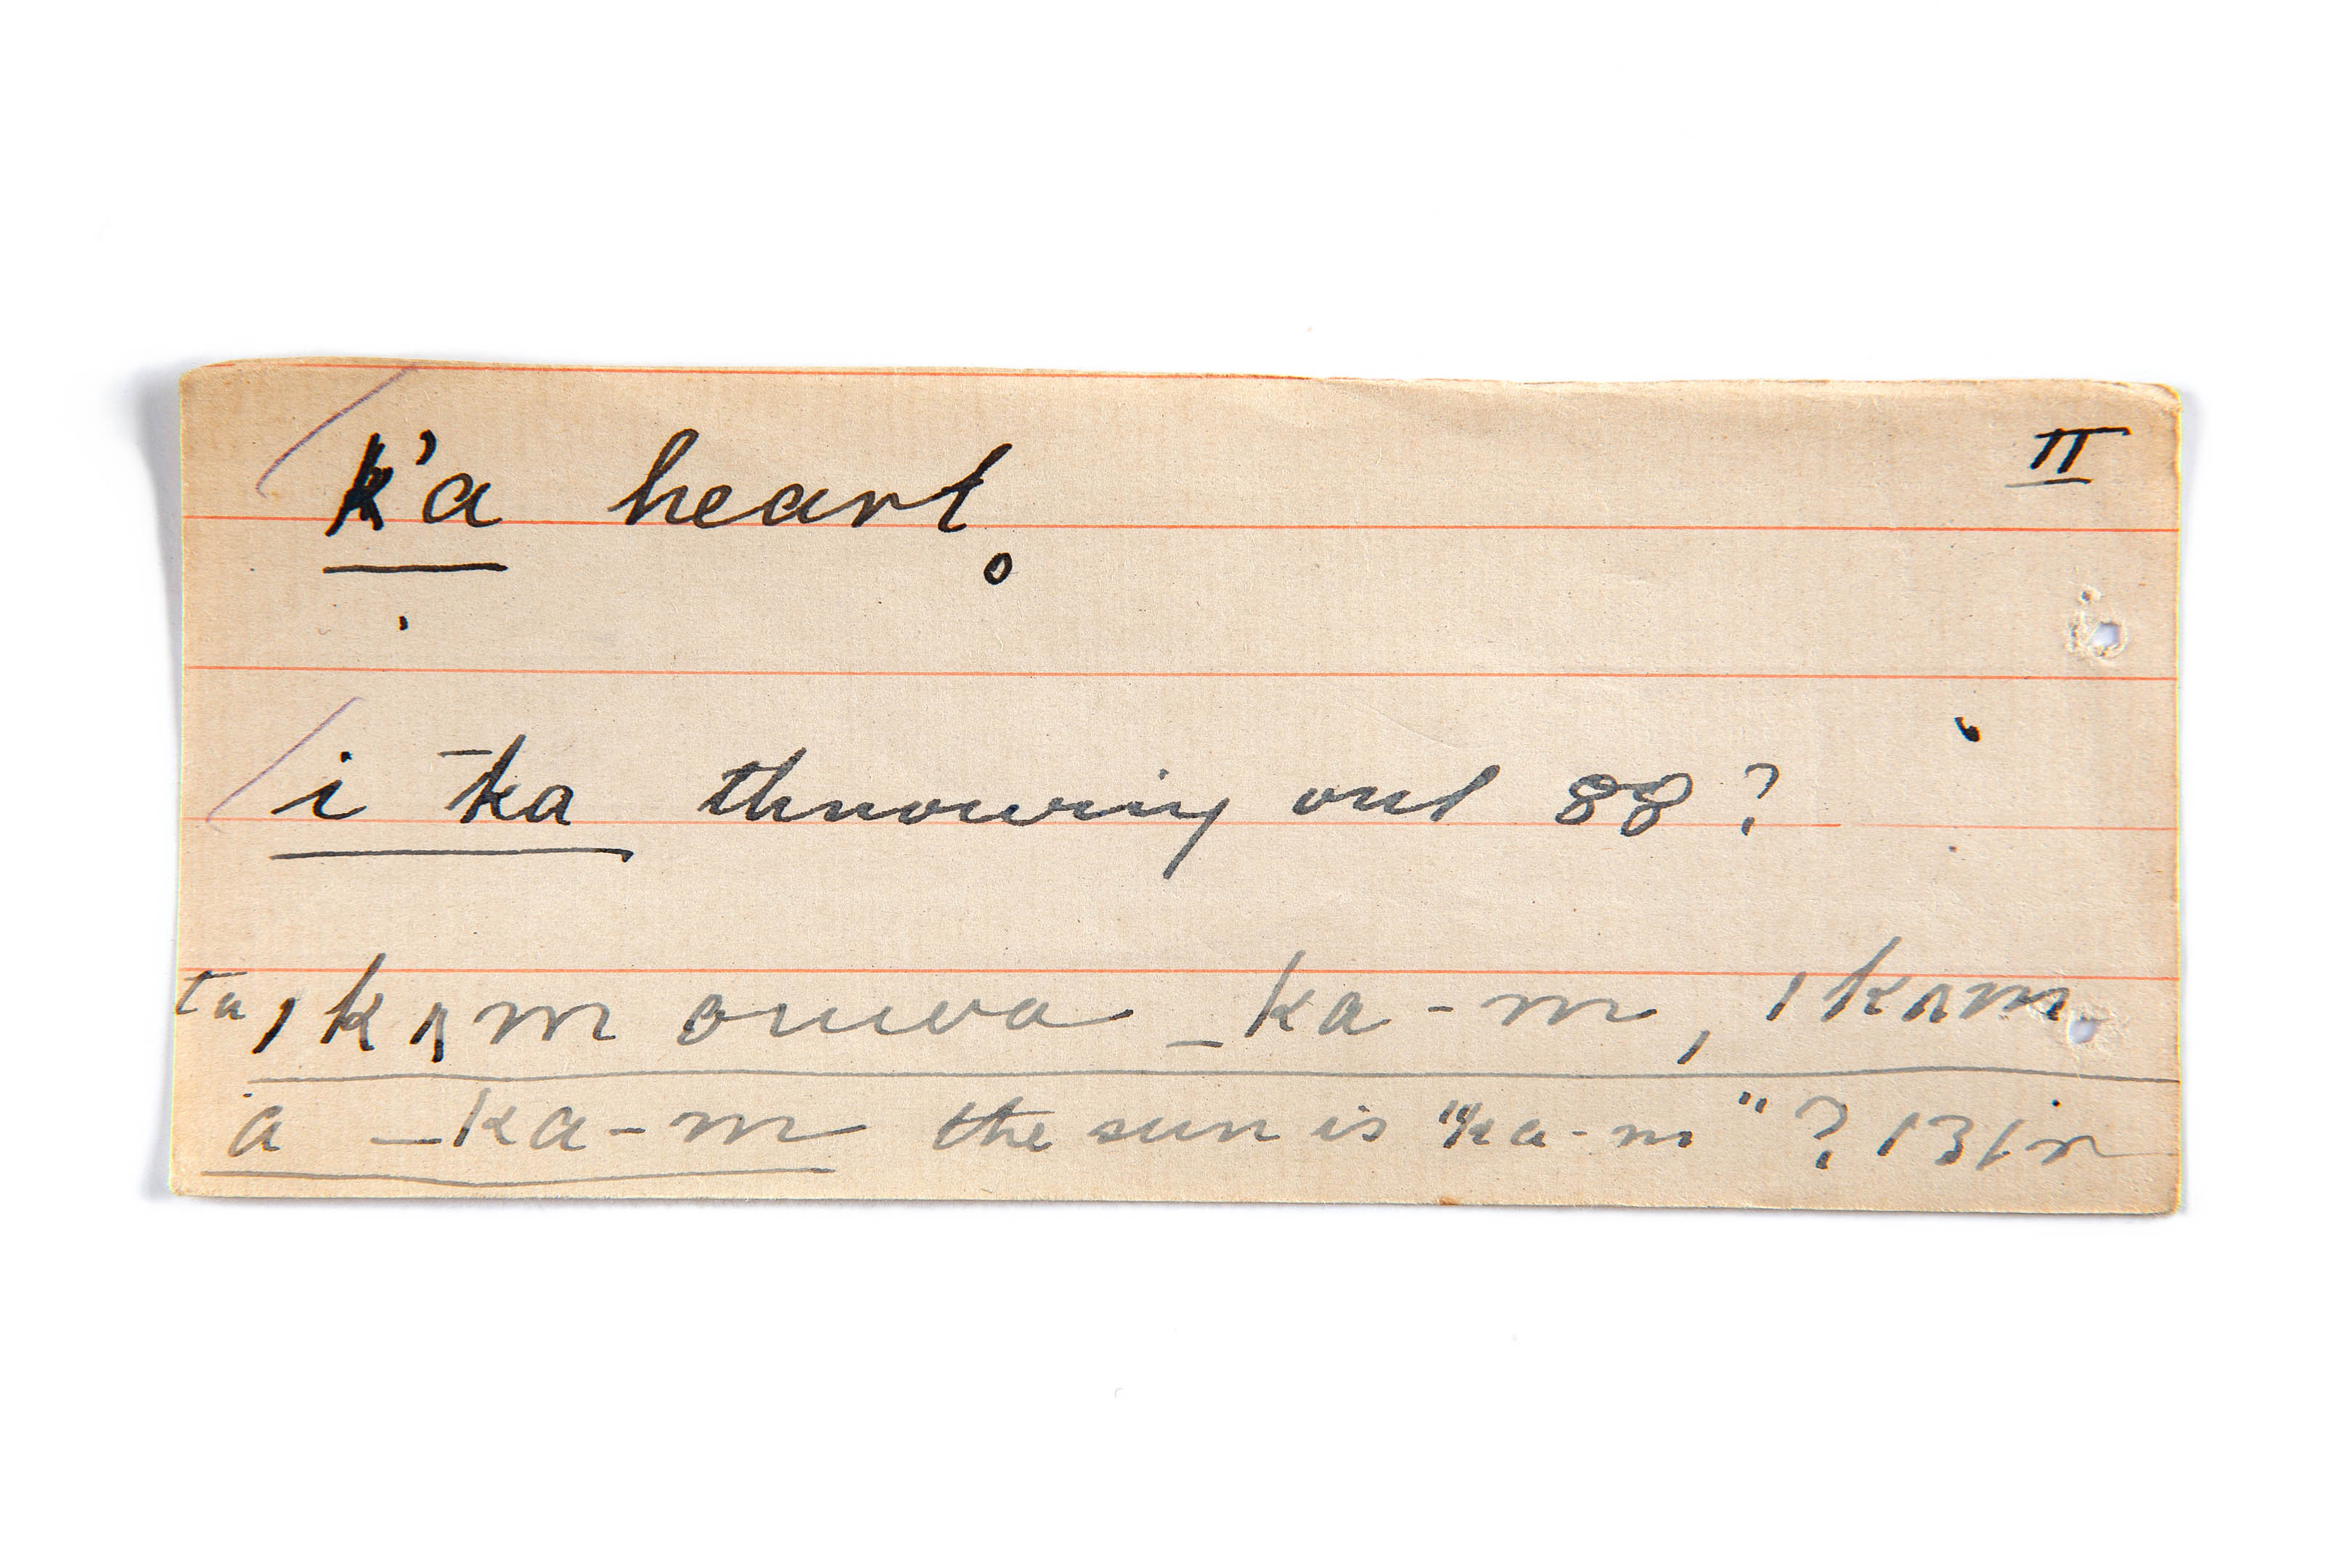 k'a heart. II
i ¯ka throwing out 88 ?
ta, ˌkʌm ouwa _ka-m, ˌkʌm
a _ka-m the sun is "ka-m" ? 131r